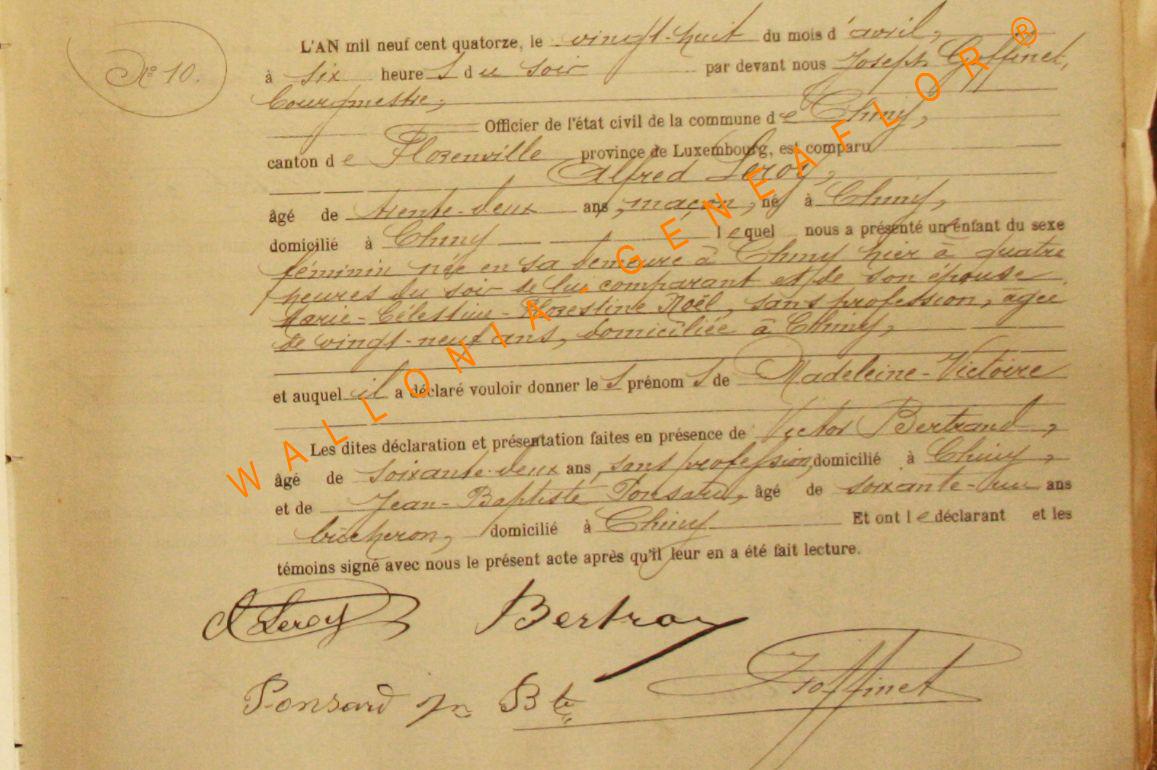 N° 10.
L'AN mil neuf cent quatorze, le vingt-huit du mois d'avril,
à six heures du soir par devant nous Joseph Goffinet,
bourgmestre,
Officier de l'état civil de la commune de Chiny,
canton de Florenville province de Luxembourg, est comparu
Alfred Leroy,
âgé de trente-deux ans, maçon, né à Chiny,
domicilié à Chiny lequel nous a présenté un enfant du sexe
féminin née en sa demeure à Chiny hier à quatre
heures du soir de lui comparant et de son épouse
Marie-Célestine-Florestine Noël, sans profession, âgée
de vingt-neuf ans, domiciliée à Chiny,
et auquel il a déclaré vouloir donner les prénoms de Madeleine-Victoire
Les dites déclaration et présentation faites en présence de Victor Bertrand,
âgé de soixante-deux ans, sans profession, domicilié à Chiny,
et de Jean-Baptiste Ponsard, âgé de soixante-un ans
bûcheron, domicilié à Chiny Et ont le déclarant et les
témoins signé avec nous le présent acte après qu'il leur en a été fait lecture.
A Leroy Bertran
Ponsard Jn Bte JGoffinet
WALLONIA-GENEAFLOR®